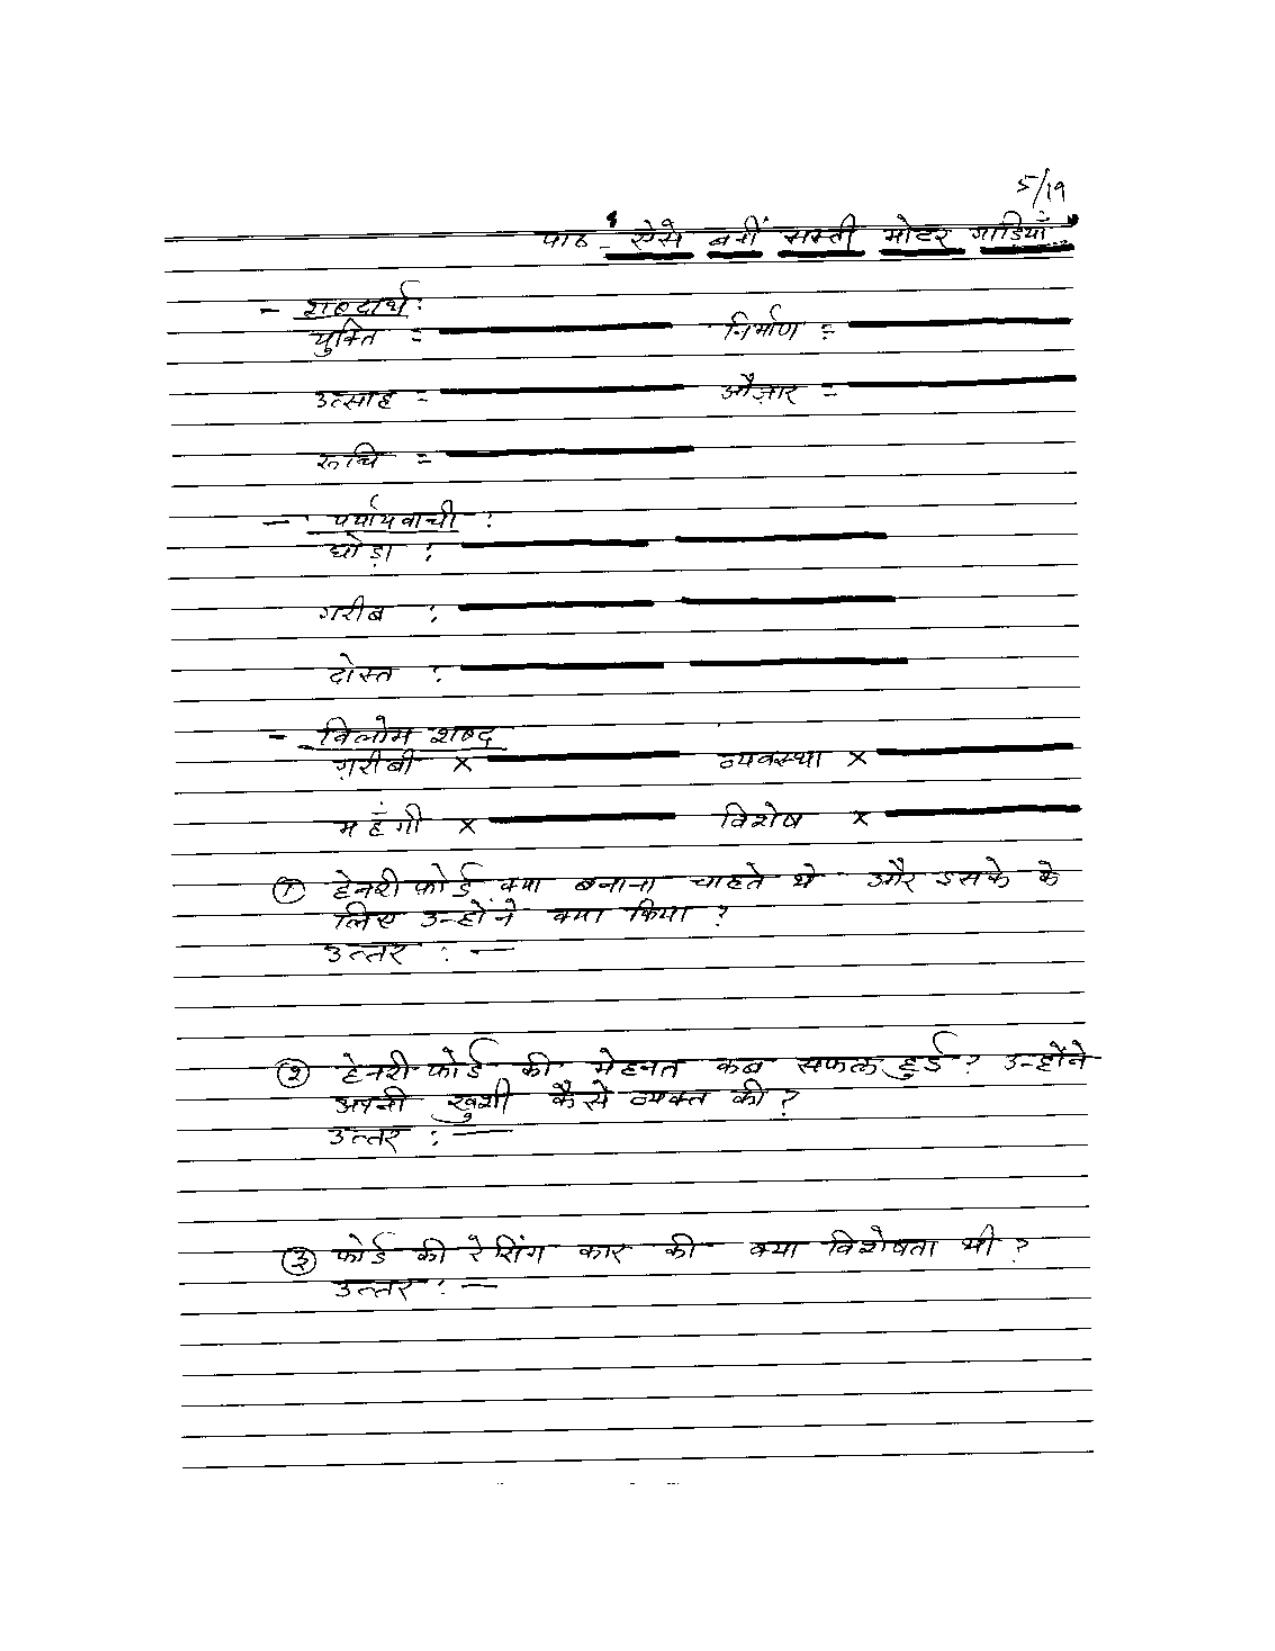 5/19
पाठ - "ऐसे बनीं सस्ती मोटर गाड़ियाँ"
- शब्दार्थ :
युक्ति = निर्माण =
उत्साह = औज़ार =
रूचि =
- पर्यायवाची :
घोड़ा :
गरीब :
दोस्त :
- विलोम शब्द
ग़रीबी × व्यवस्था ×
महँगी × विशेष ×
① हेनरी फ़ोर्ड क्या बनाना चाहते थे और इसके के
लिए उन्होंने क्या किया ?
उत्तर : —
② हेनरी फोर्ड की मेहनत कब सफल हुई ? उन्होंने
अपनी खुशी कैसे व्यक्त की ?
उत्तर : —
③ फोर्ड की रेसिंग कार की क्या विशेषता थी ?
उत्तर : —